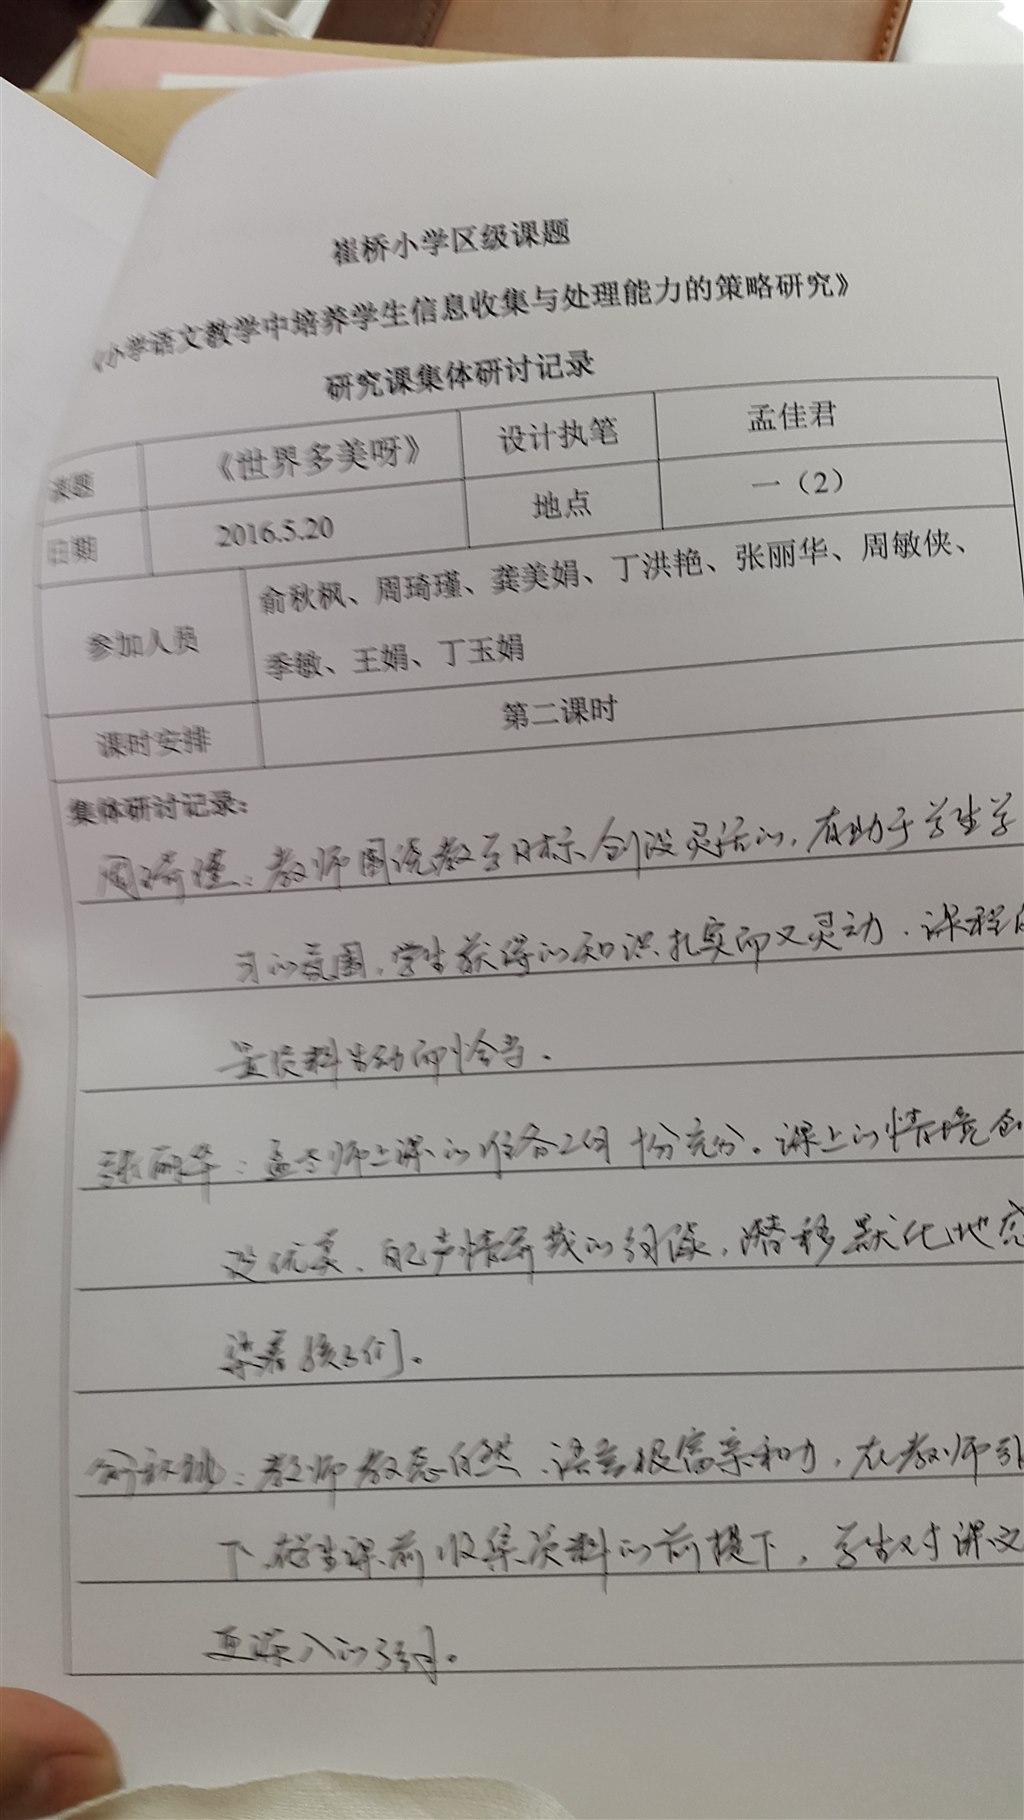 崔桥小学区级课题
《小学语文教学中培养学生信息收集与处理能力的策略研究》
研究课集体研讨记录
课题 《世界多美呀》 设计执笔 孟佳君
日期 2016.5.20 地点 一（2）
参加人员 俞秋枫、周琦瑾、龚美娟、丁洪艳、张丽华、周敏侠、
季敏、王娟、丁玉娟
课时安排 第二课时
集体研讨记录：
周琦瑾：教师围绕教学目标创设灵活的，有助于学生学
习的氛围，学生获得的知识扎实而又灵动．课程
资料生动而恰当．
张丽华：孟老师上课的准备工作十分充分。课上的情境创
设优美、配声情并茂的 ，潜移默化地感
染着孩子们。
俞秋枫：教师教态自然、语言很富亲和力，在教师引
下，学生课前收集资料的前提下，学生对课文
更深入的 。